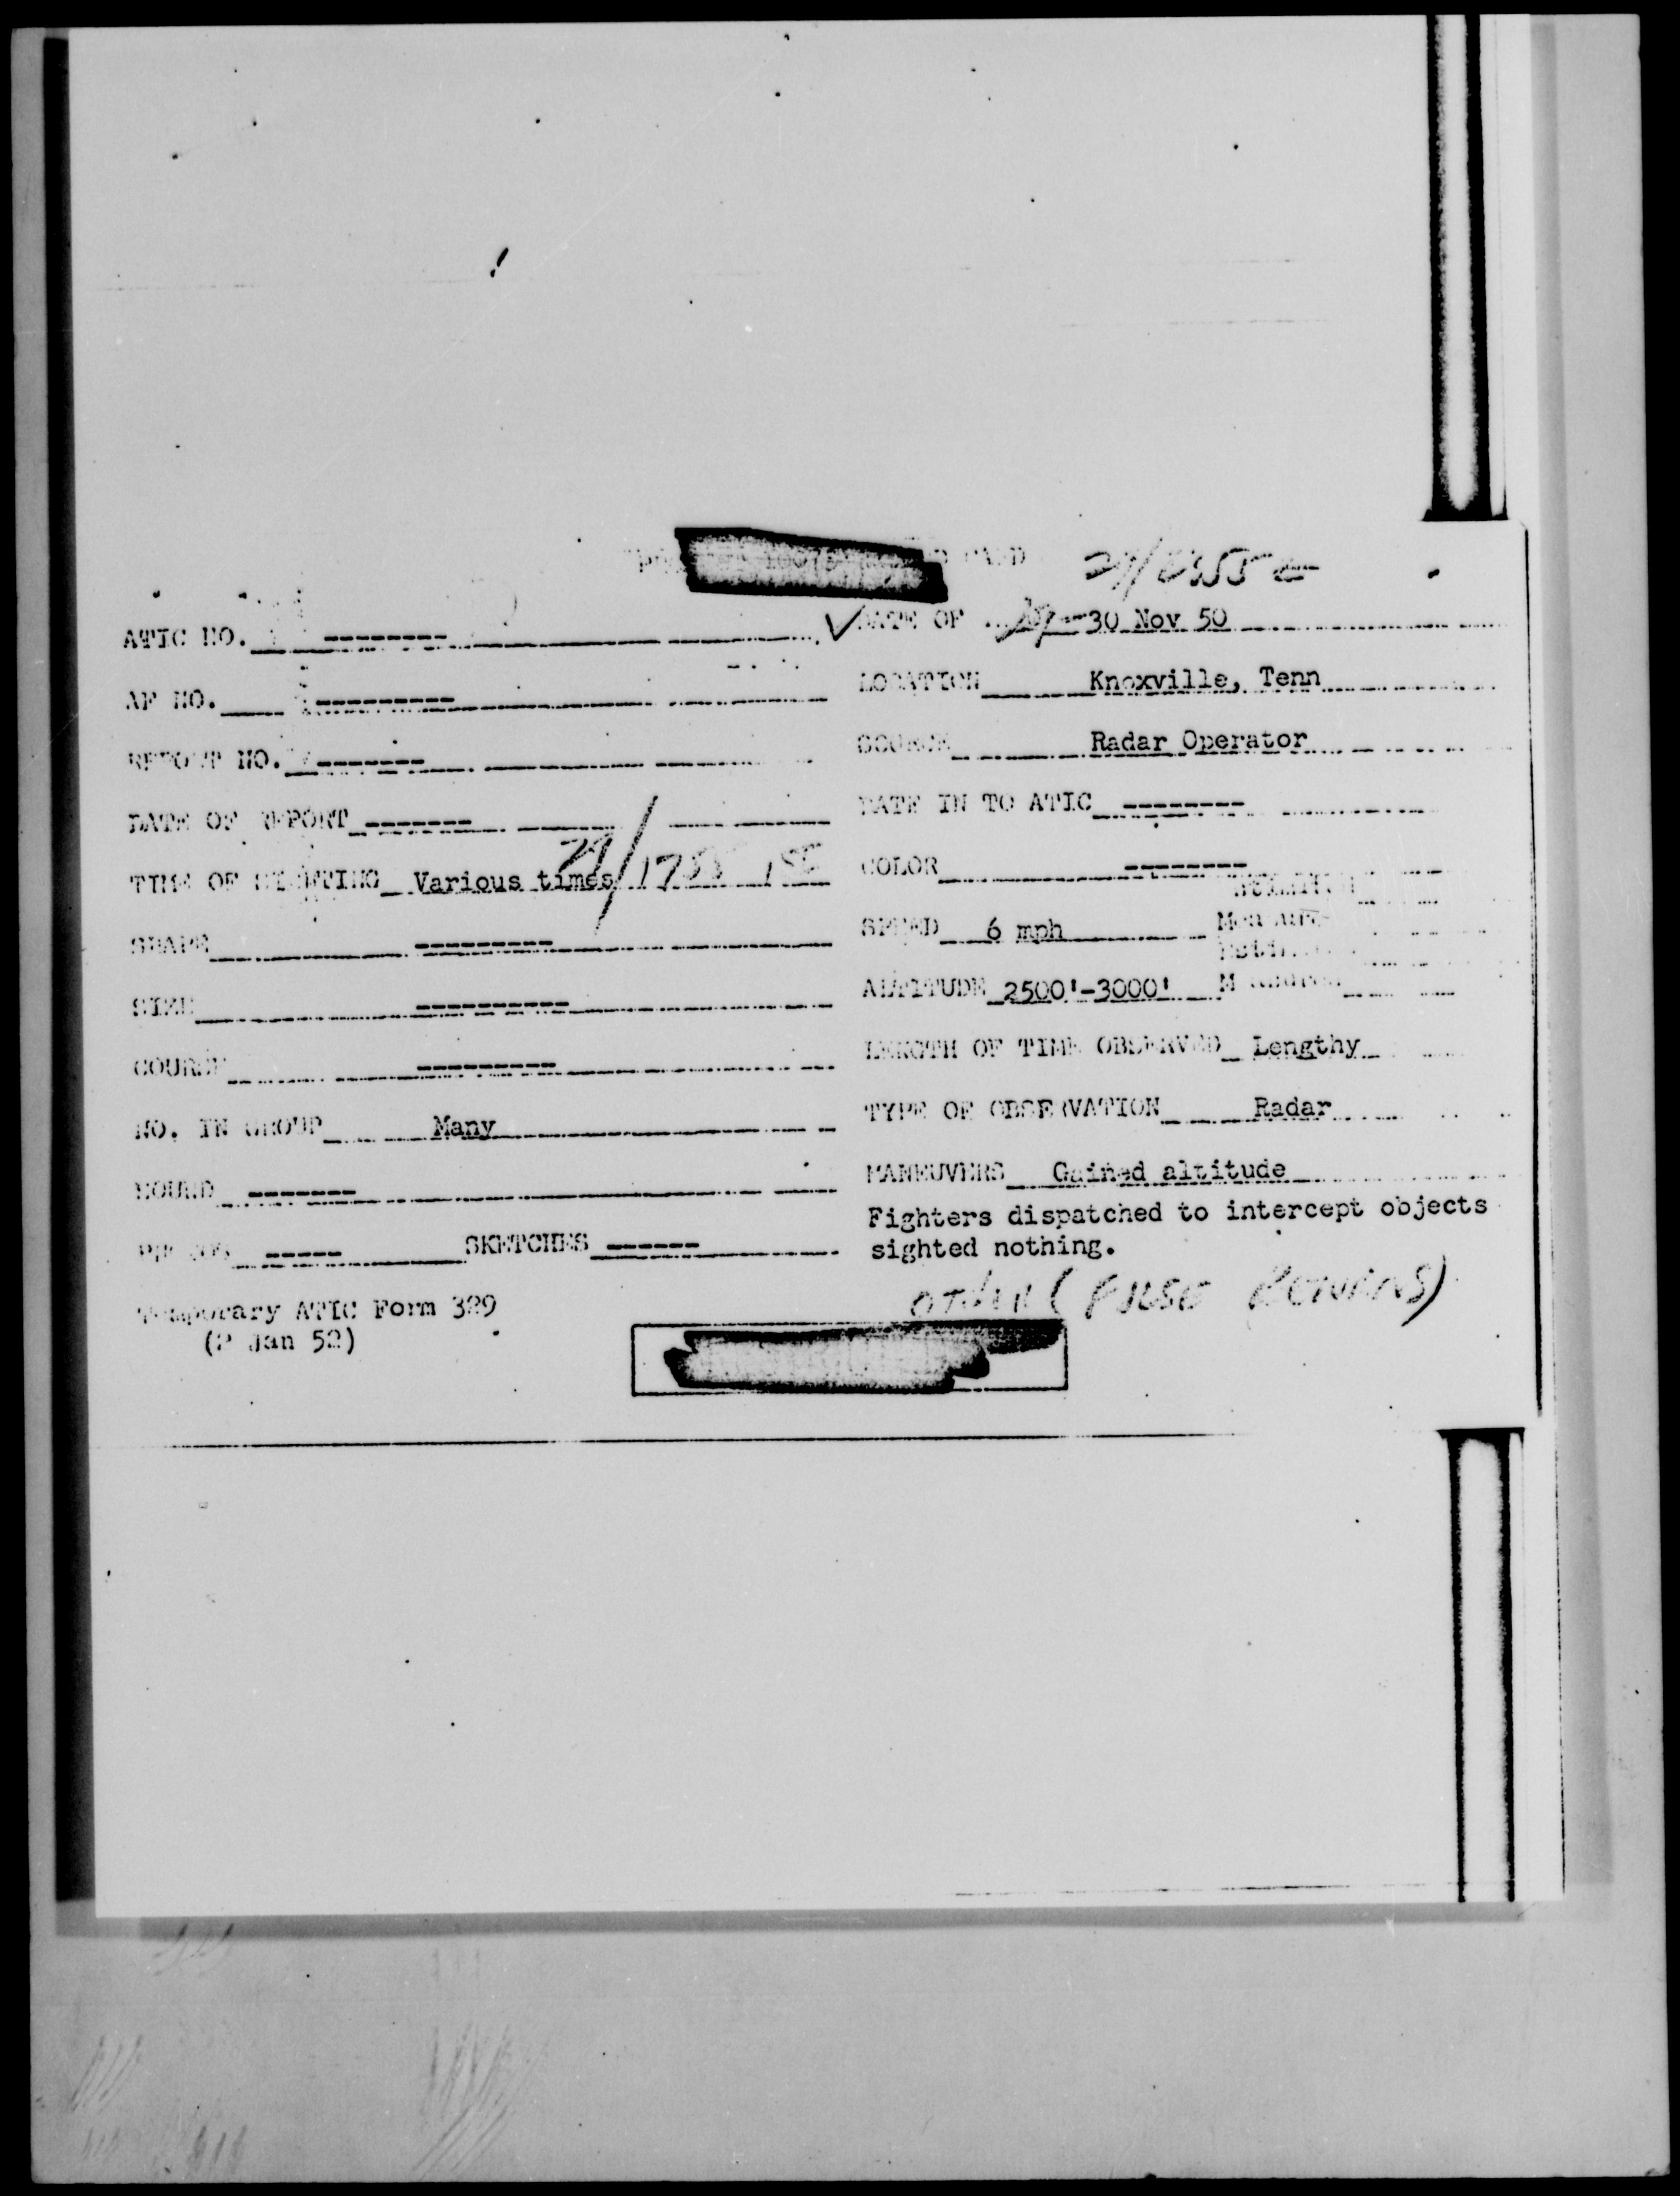 29/2255 Z
ATIC NO. --------
DATE OF 29-30 Nov 50
AF NO. ---------
LOCATION Knoxville, Tenn
REPORT NO. -------
SOURCE Radar Operator
DATE OF REPORT -------
DATE IN TO ATIC --------
TIME OF SIGHTING Various times 29/1755 EST
COLOR --------
SHAPE ---------
SPEED 6 mph
SIZE ----------
ALTITUDE 2500'-3000'
COURSE ---------
LENGTH OF TIME OBSERVED Lengthy
NO. IN GROUP Many
TYPE OF OBSERVATION Radar
SOUND -------
MANEUVERS Gained altitude
Fighters dispatched to intercept objects
sighted nothing.
PHOTOS ----- SKETCHES ------
OTHER (FALSE RETURNS)
Temporary ATIC Form 329
(2 Jan 52)